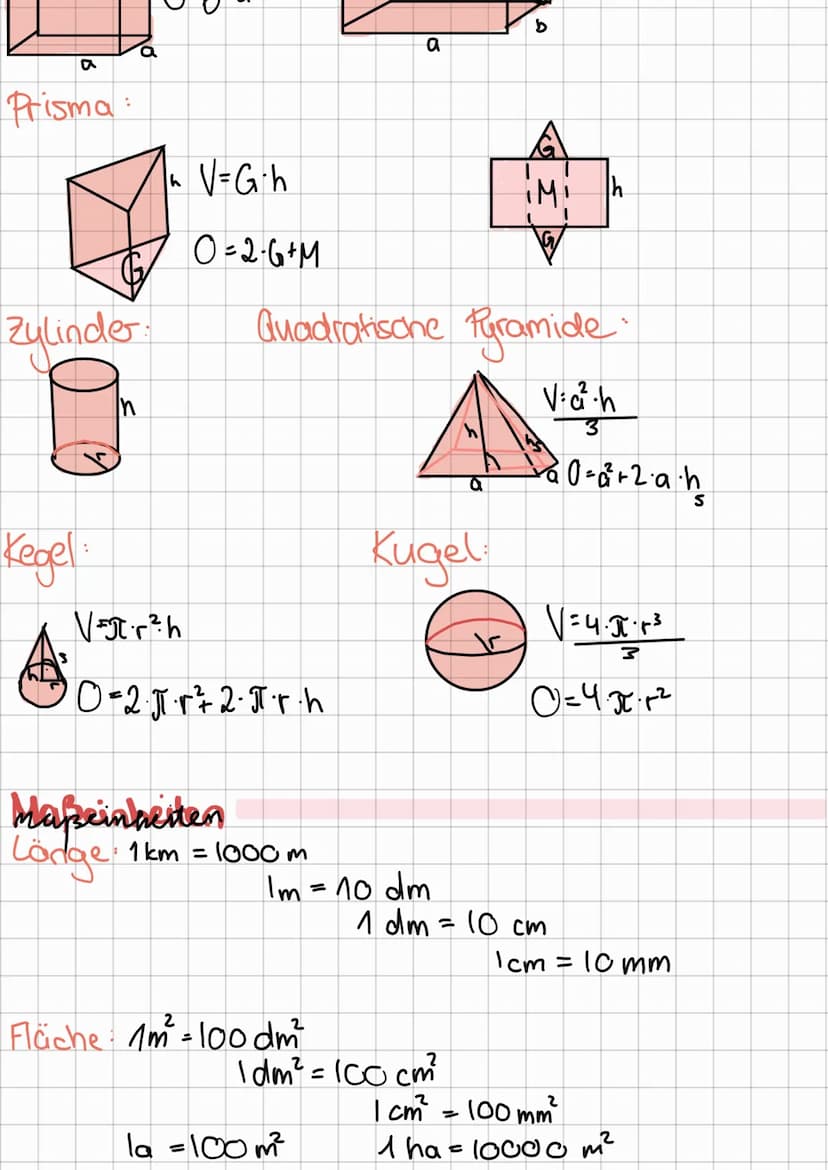 a
a
a
b
Prisma:
h
V=G·h
G
O=2·G+M
G
M
h
G
Zylinder:
Quadratische Pyramide:
h
r
h
hs
a
a
V=a²·h
3
O=a²+2·a·hs
Kegel:
Kugel:
s
h
r
V=π·r²·h
O=2·π·r²+2·π·r·h
r
V=4·π·r³
3
O=4·π·r²
Maßeinheiten
Länge: 1km = 1000 m
1m = 10 dm
1 dm = 10 cm
1cm = 10 mm
Fläche: 1m² = 100 dm²
1dm² = 100 cm²
1cm² = 100 mm²
1a = 100 m²
1 ha = 10000 m²